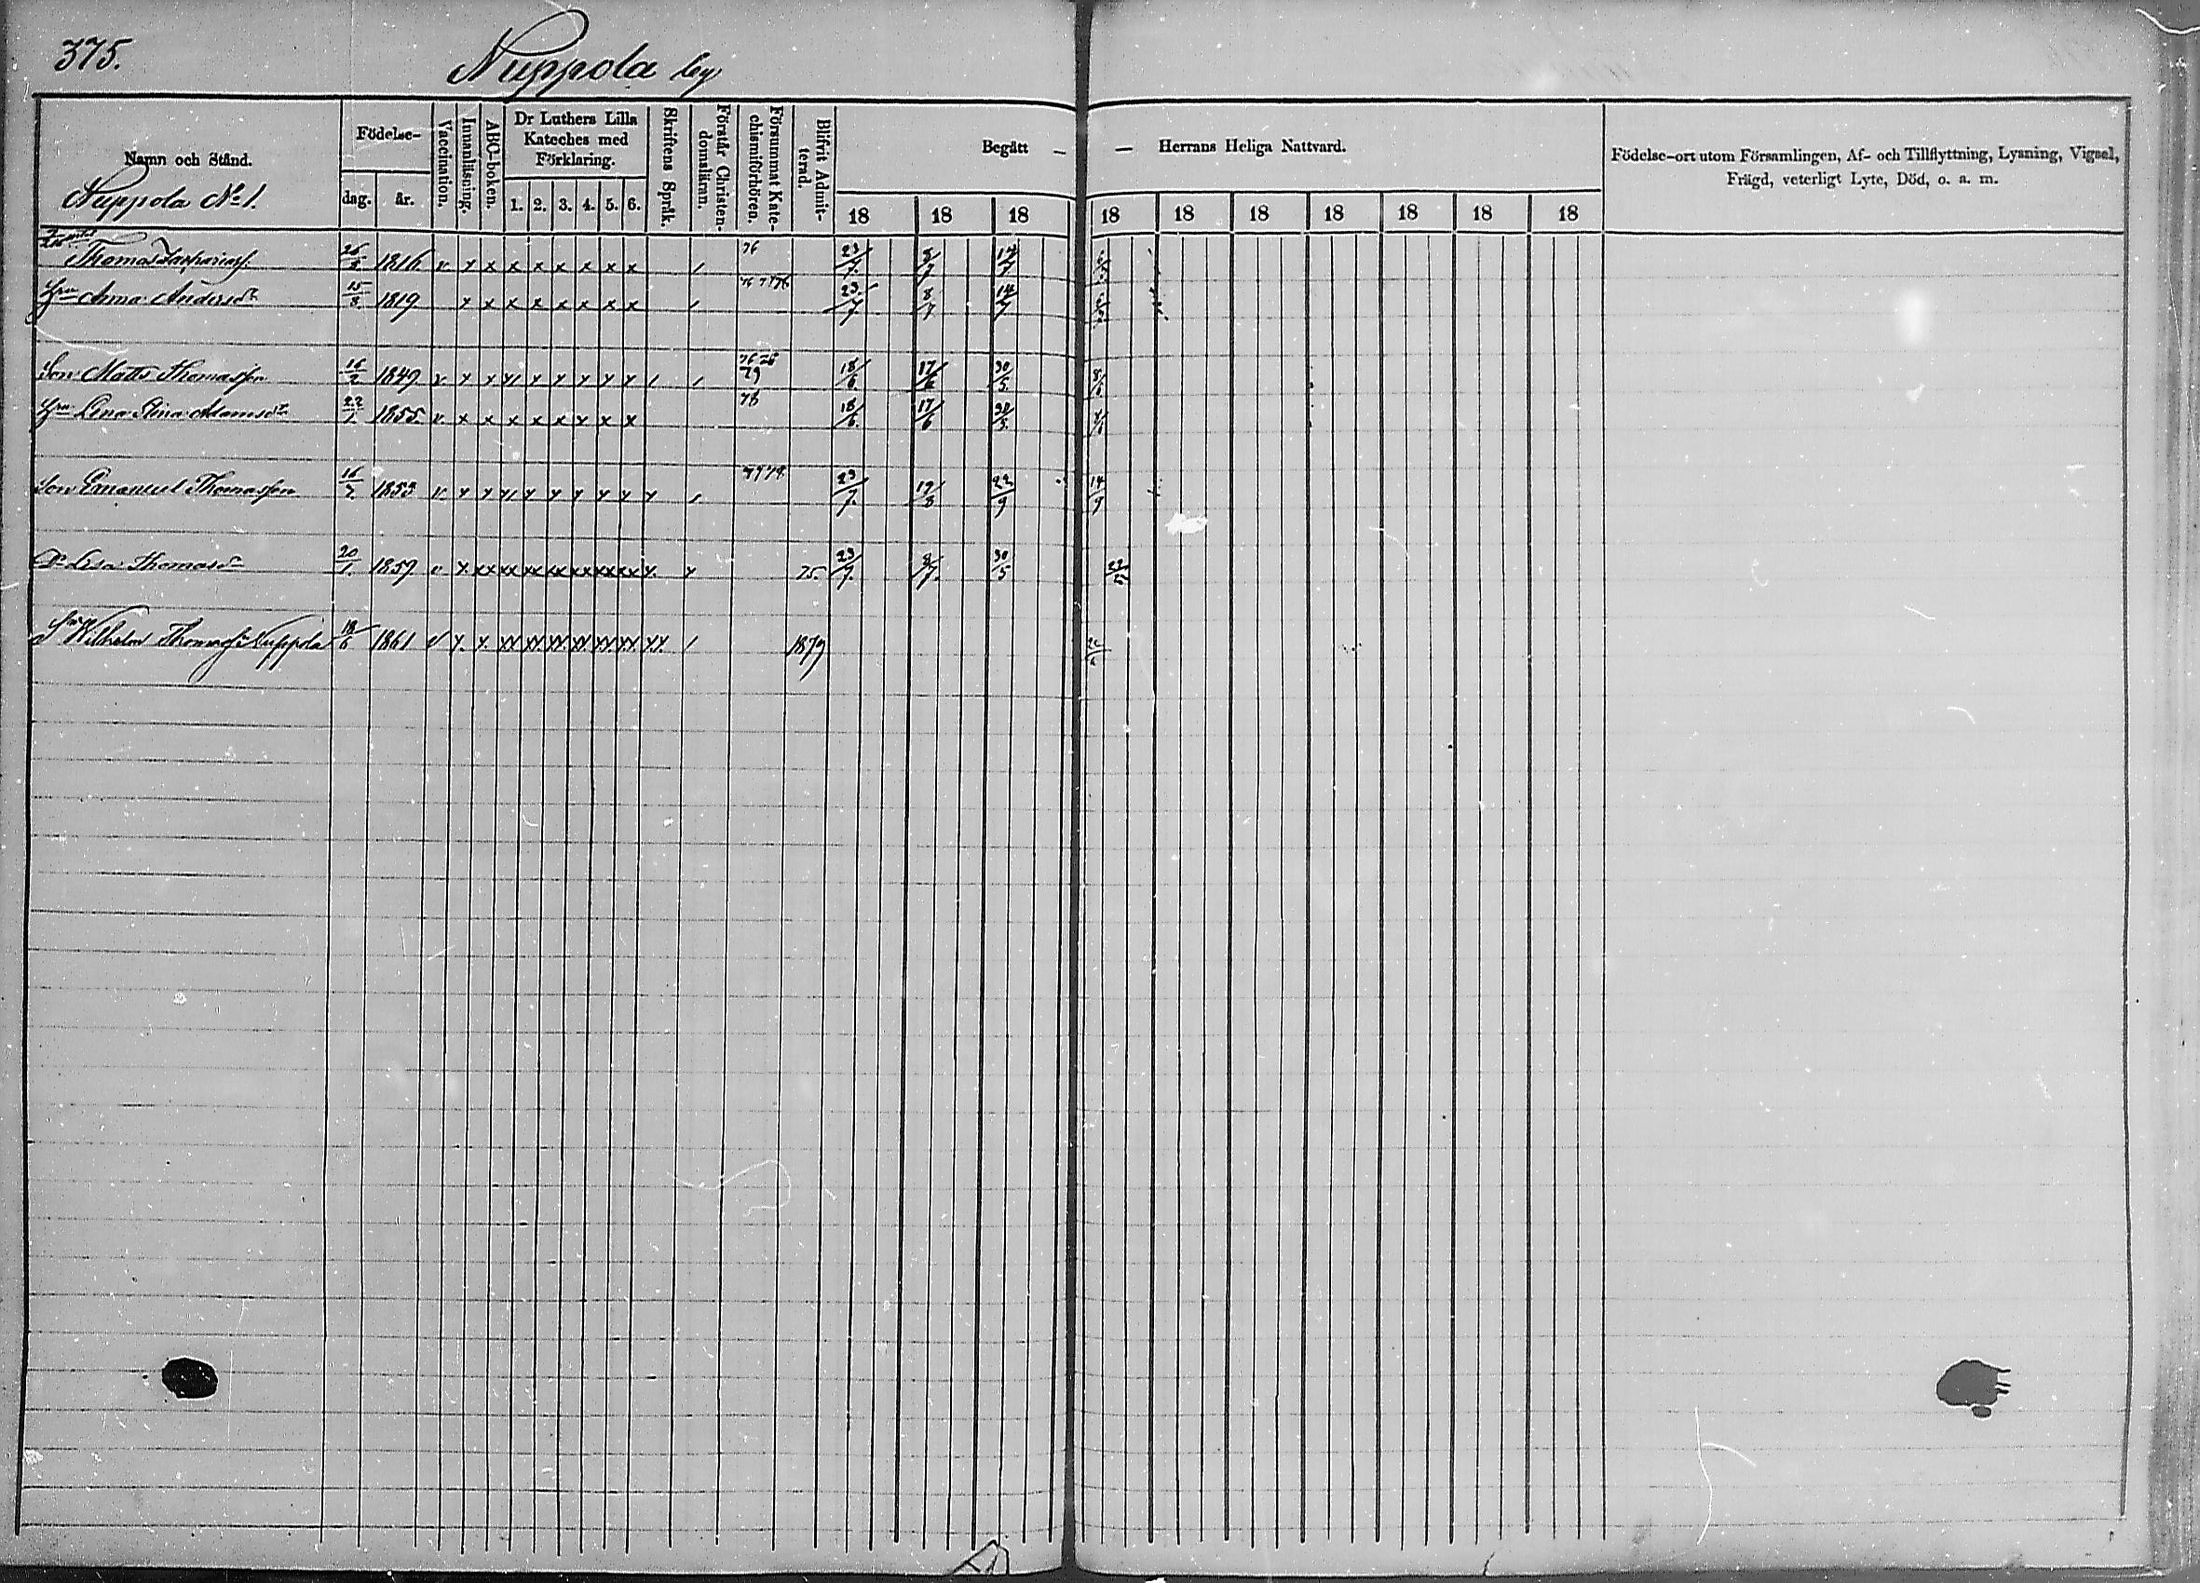 375.
Nuppola by
Namn och Stånd.
Födelse-
dag.
år.
Vaccination.
Innanläsning.
ABC-boken.
Dr Luthers Lilla
Kateches med
Förklaring.
1. 2. 3. 4. 5. 6.
Skriftens Språk.
Förstår Christen-
domsläran.
Försummat Kate-
chismiförhören.
Blifvit Admit-
terad.
Begått — — Herrans Heliga Nattvard.
18 18 18 18 18 18 18 18 18 18
Födelse-ort utom Församlingen, Af- och Tillflyttning, Lysning, Vigsel,
Frägd, veterligt Lyte, Död, o. a. m.
Nuppola No 1.
Thomas Zachariass. 26/3 1816 v x x x x x x x x / 76 23/7 8/7 14/7
Hru Anna Andersdr 15/8 1819 x x x x x x x x / 76 77 78 23/7 8/7 14/7
Son Matts Thomasson 16/2 1849 v x x x x x x x x / / 76 78 79 18/6 17/6 30/5
Hru Lena Stina Adamsdr 22/1 1855 v x x x x x x x x 78 18/6 17/6 30/5
Son Emanuel Thomasson 16/7 1853 v x x x x x x x x x / 77 78 23/7 19/8 22/9 14/9
Dr Lisa Thomasdr 20/1 1859 v x xx xx xx xx xx xx xx x x 75. 23/7 8/7 30/5
Sn Wilhelm Thomass. Nuppola 18/6 1861 v x x xx xx xx xx xx xx xx / 1879